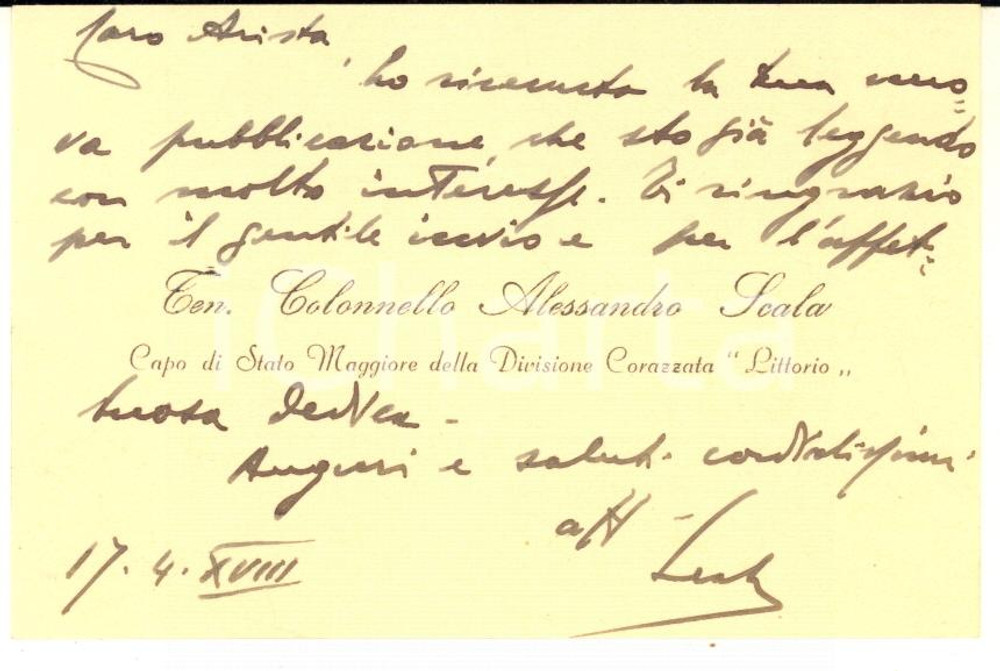 Caro Arista,
ho ricevuta la tua nuo=
va pubblicazione, che sto già leggendo
con molto interesse. Ti ringrazio
per il gentile invio e per l'affet=
Ten. Colonnello Alessandro Scala
Capo di Stato Maggiore della Divisione Corazzata "Littorio"
tuosa dedica -
Auguri e saluti cordialissimi
aff - Scala
17. 4. XVIII
iCharta